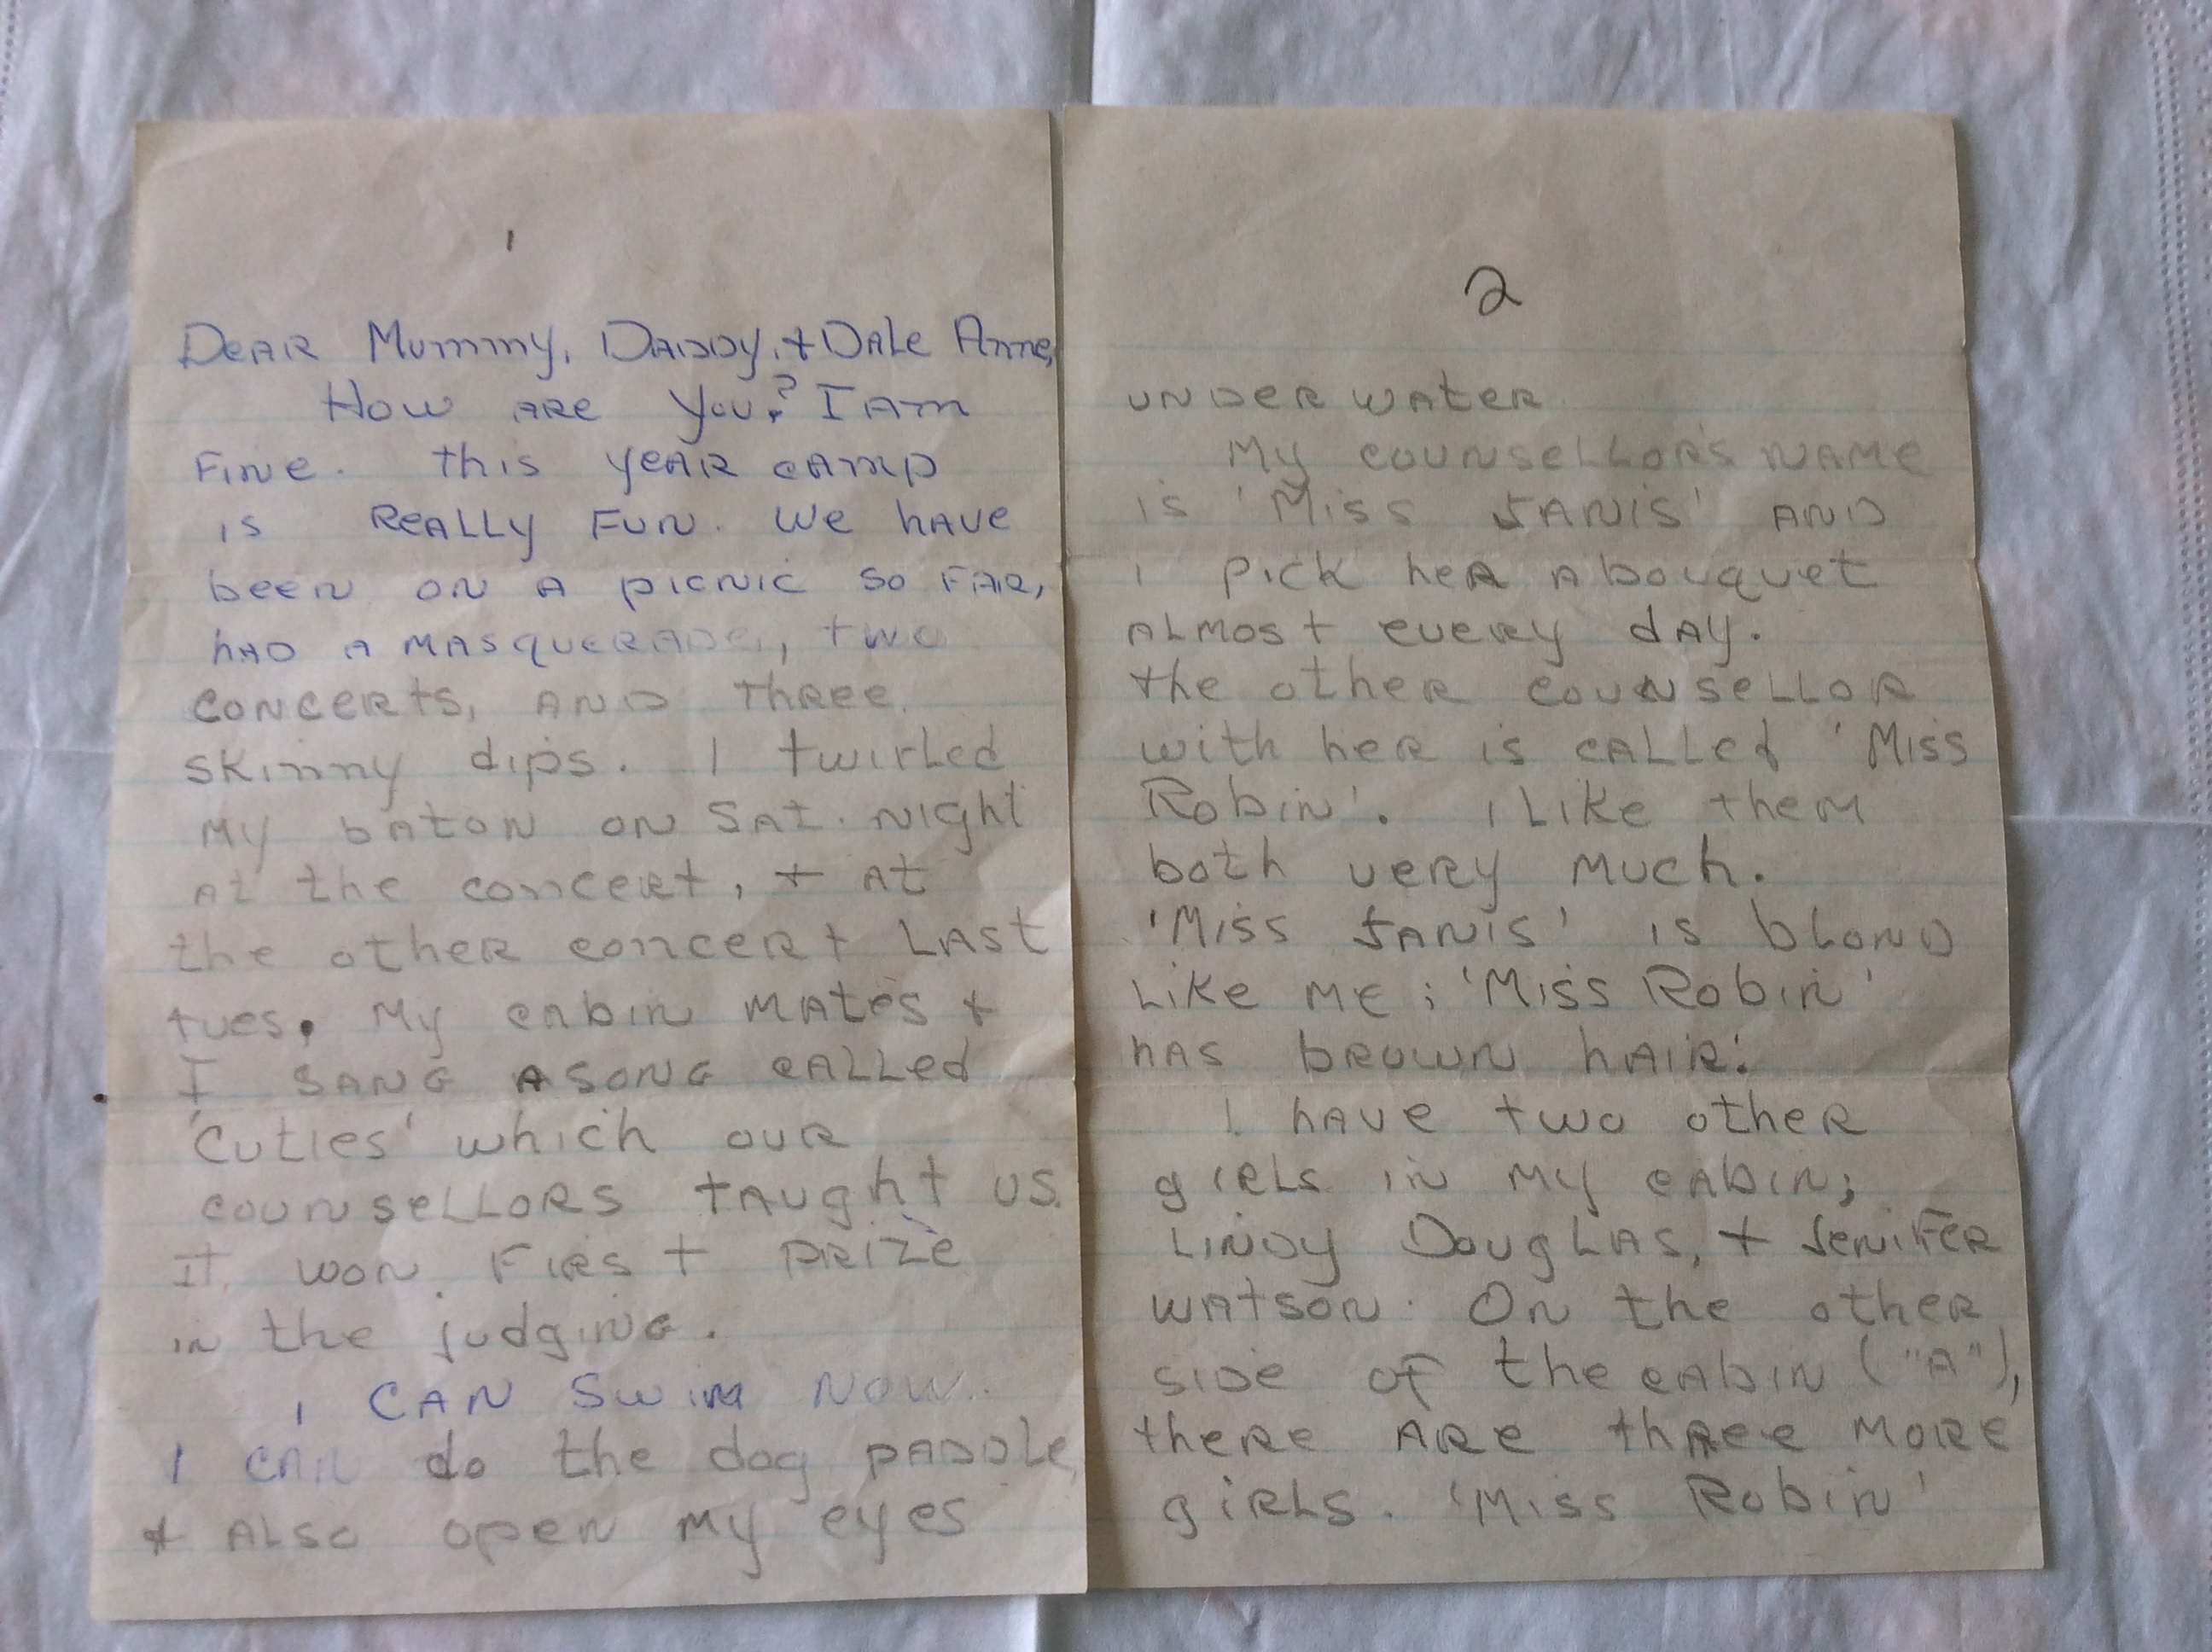 1
Dear Mummy, Daddy, + Dale Anne,
How are you? I am
fine. this year camp
is really fun. We have
been on a picnic so far,
had a masquerade, two
concerts, and three
skinny dips. I twirled
my baton on Sat. night
at the concert, + at
the other concert last
tues. My cabin mates +
I sang a song called
'Cuties' which our
counsellors taught us.
It won first prize
in the judging.
I can swim now.
I can do the dog paddle,
+ also open my eyes
2
under water
My counsellor's name
is 'Miss Janis' and
i pick her a bouquet
almost every day.
the other counsellor
with her is called 'Miss
Robin'. i like them
both very much.
'Miss Janis' is blond
like me; 'Miss Robin'
has brown hair.
I have two other
girls in my cabin;
Lindy Douglas, + Jenifer
Watson. On the other
side of the cabin ("A"),
there are three more
girls. 'Miss Robin'